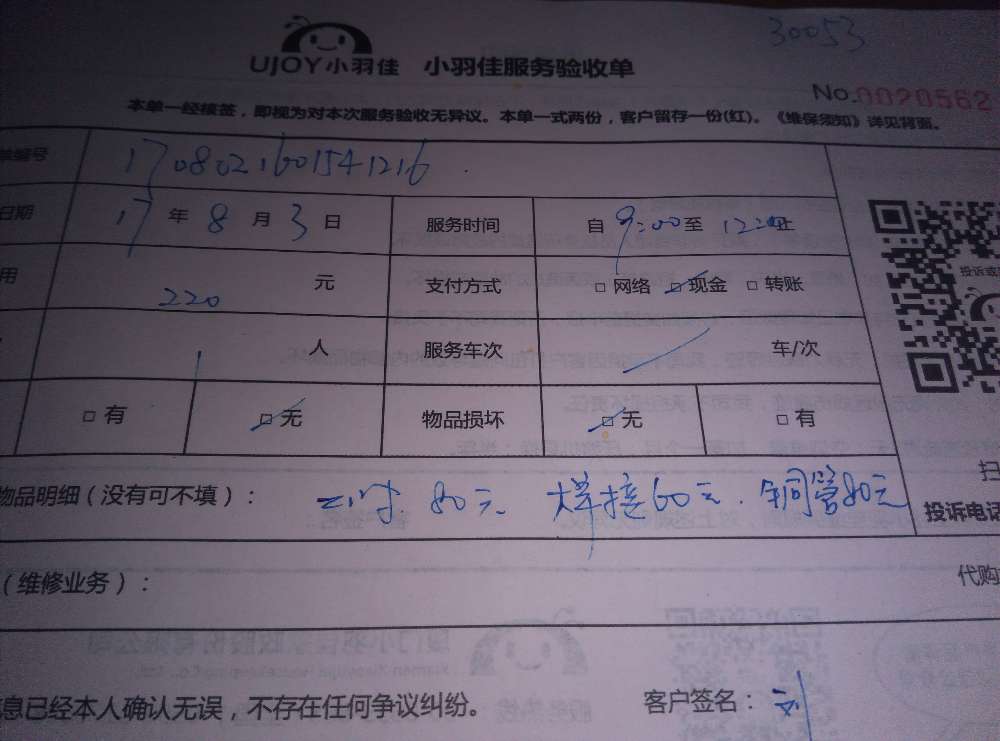 30053
UJOY小羽佳 小羽佳服务验收单
No.0020562
本单一经核签，即视为对本次服务验收无异议。本单一式两份，客户留存一份(红)。《维保须知》详见背面。
单编号 1708021601541216
日期 17年8月3日 服务时间 自9:00至12:20止
用 220 元 支付方式 □网络 ☑现金 □转账
1 人 服务车次 车/次
□有 ☑无 物品损坏 ☑无 □有
投诉或
物品明细（没有可不填）： 80元 焊接60元. 铜管80元
扫
投诉电话
（维修业务）：
代购
息已经本人确认无误，不存在任何争议纠纷。 客户签名：刘